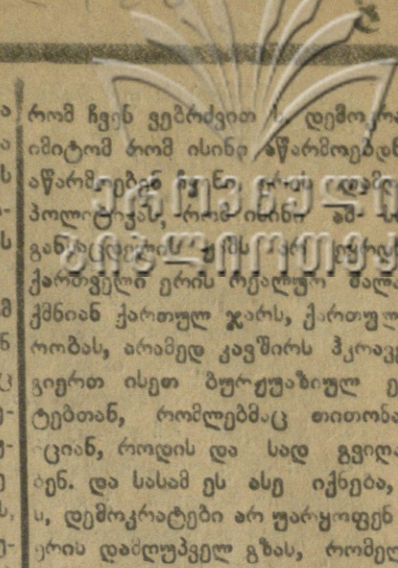 რომ ჩვენ ვებრძვით ს. დემოკრა
იმიტომ რომ ისინი აწარმოებდნ
აწარმოებენ ჩვენი ერის დამღ
პოლიტიკას, რომ ისინი ამ
განსაცდელის ჟამს არ
ქართველი ერის რეალურ ძალა
ქმნიან ქართულ ჯარს, ქართულ
რობას, არამედ კავშირს ჰკრავე
გიერთ ისეთ ბურჟუაზიულ ე
ტებთან, რომლებმაც თითონა
ციან, როდის და სად გვიღა
ბენ. და სასამ ეს ასე იქნება,
ს, დემოკრატები არ უარყოფენ
ერის დამღუპველ გზას, რომელ
ეროვნული
ბიბლიოთეკა